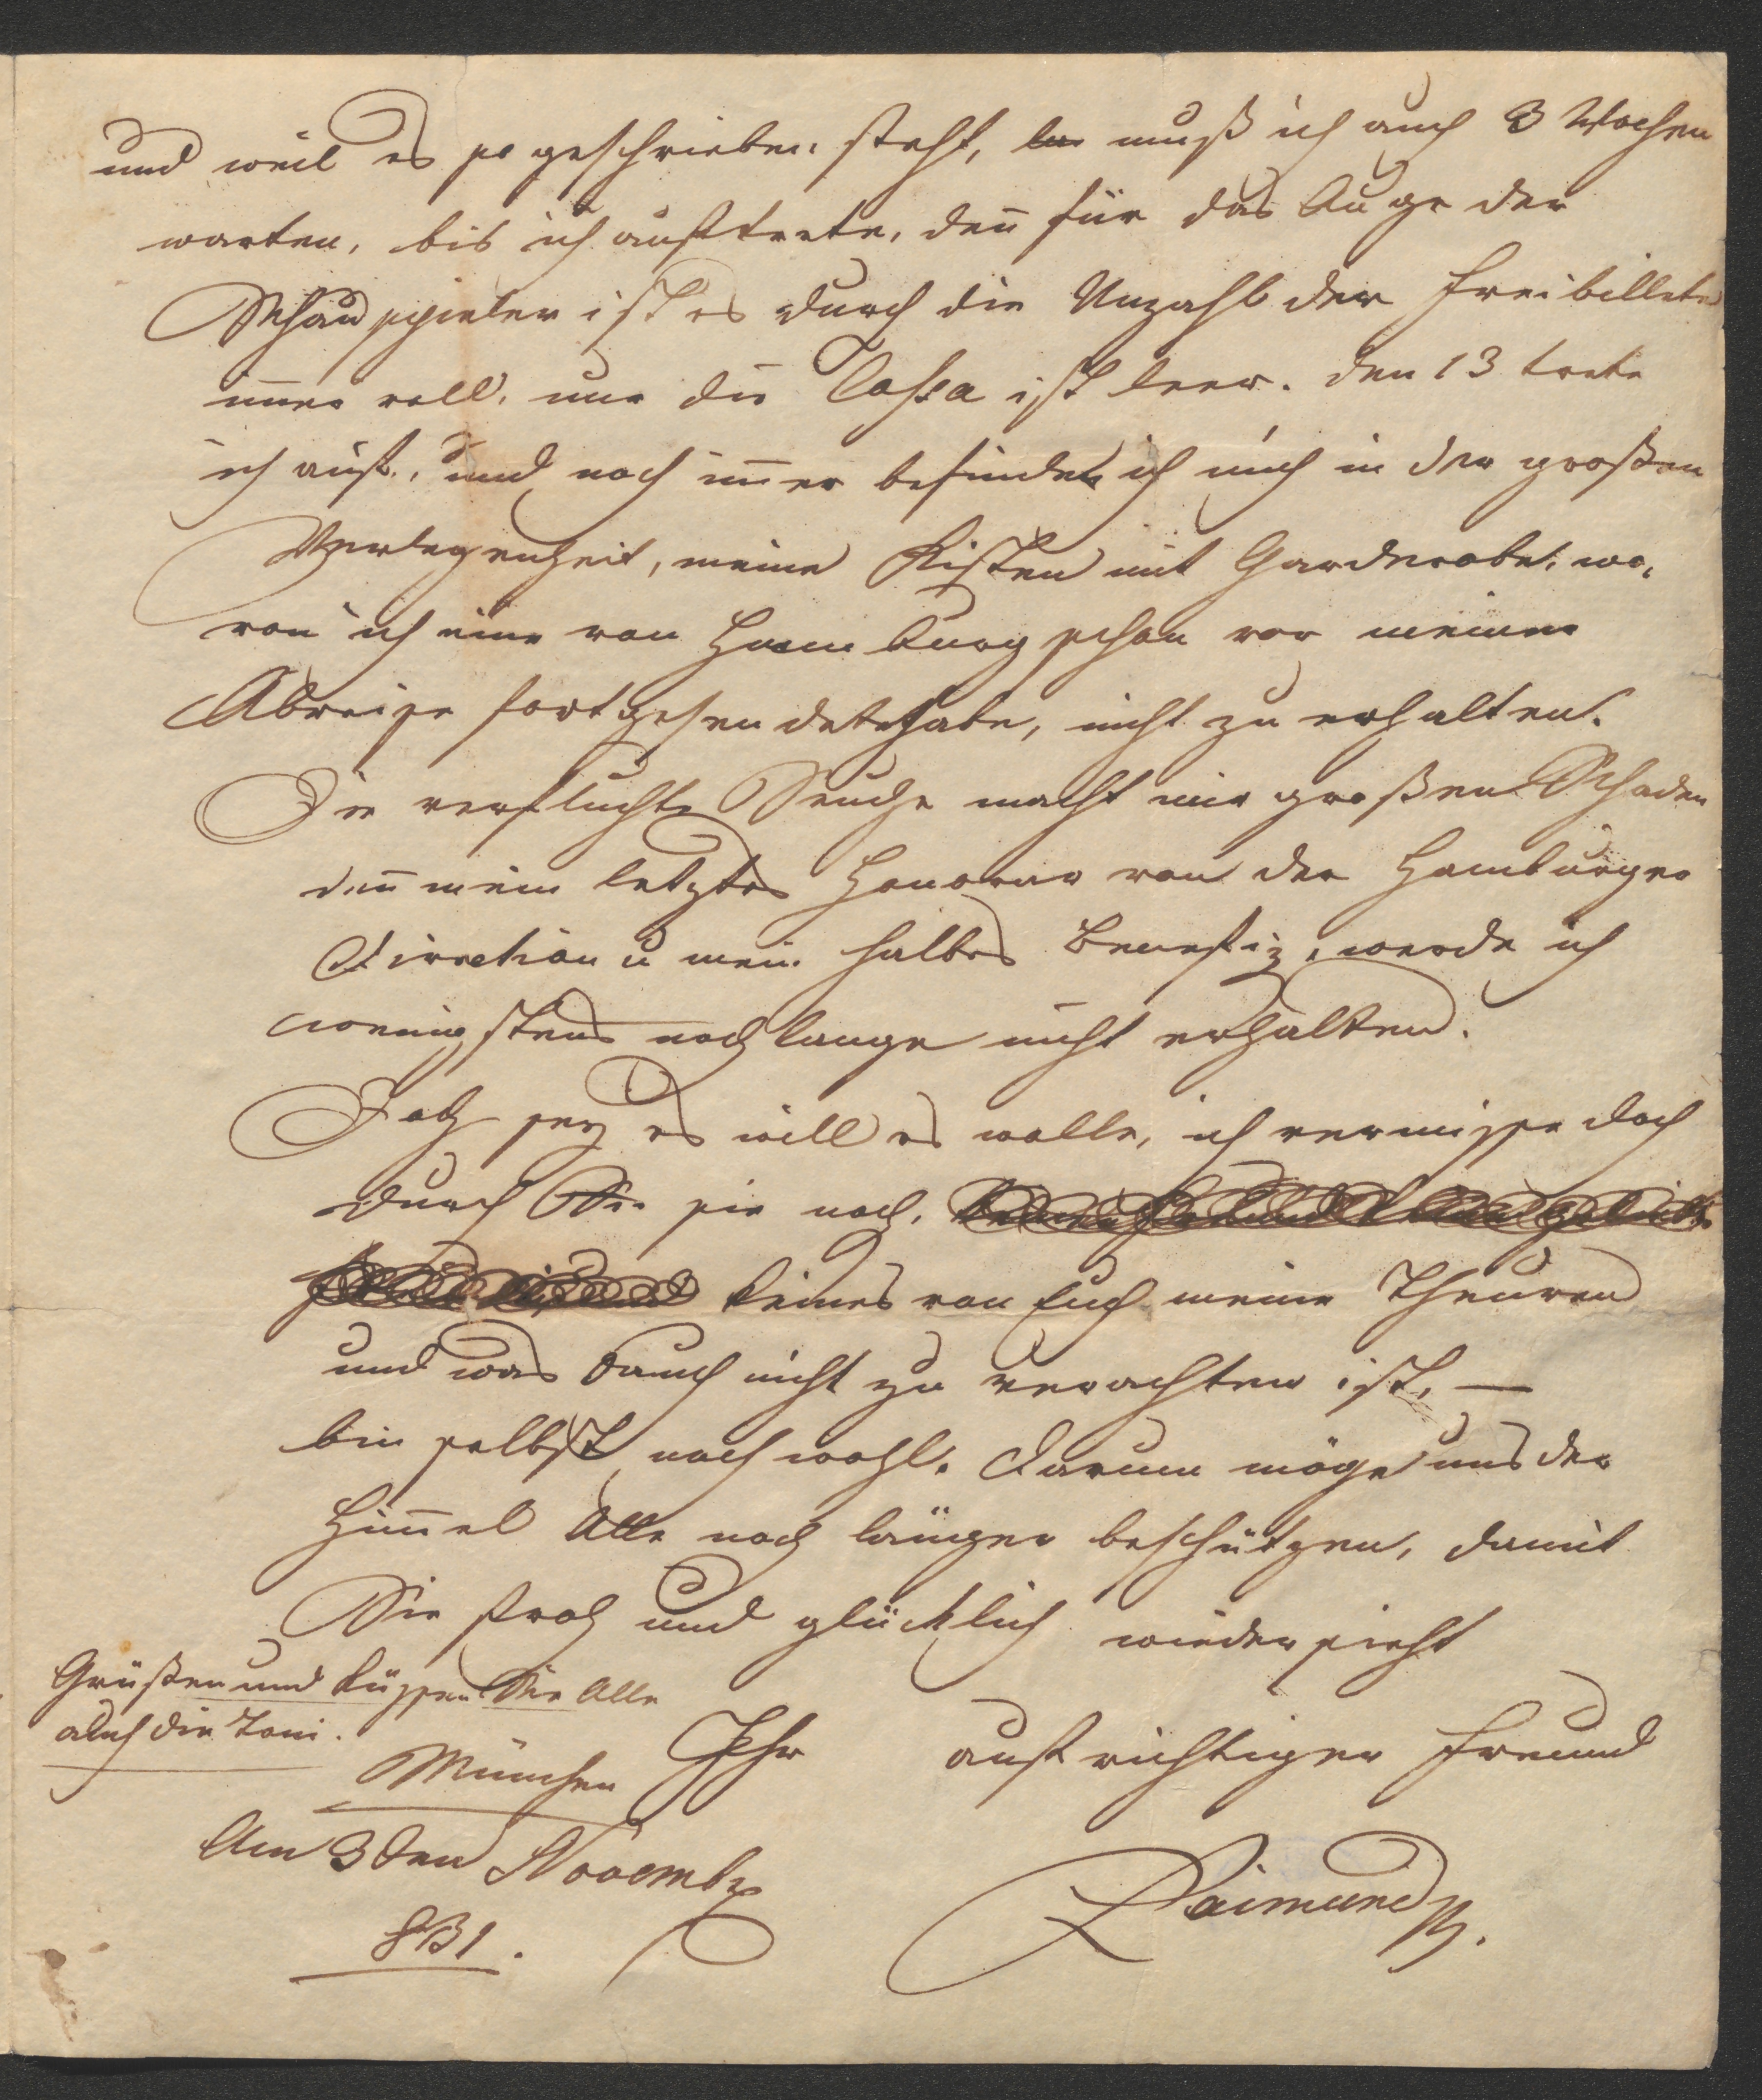 und weil es so geschrieben steht, muß ich auch 3 Wochen
warten, bis ich auftrete, deñ für das Auge der
Schauspieler ist es durch die Unzahl der Freibillete
im̄er voll, nur die Cassa ist leer. den 13 trete
ich auf, und noch im̄er befinde ich mich in der großen
Verlegenheit, meine Kisten mit Garderobe, wo,
von ich eine von Hamburg schon vor meiner
Abreise fortgesendet habe, nicht zu erhalten.
Die verfluchte Seuche macht mir großen Schaden
deñ mein letztes Honorar von der Hamburger
Direction u mein halbes Benefiz, werde ich
wenigstens noch lange nicht erhalten.
Doch sey es will es wolle, ich vermisse doch
durch sie noch,
keines von Euch meine Theuren
und was auch nicht zu verachten ist, —
bin selbst noch wohl. Darum möge uns der
Him̄el Alle noch länger beschützen, damit
Sie froh und glücklich wieder sieht
Grüßen und küssen Sie Alle
auch die Toni.
Ihr aufrichtiger Freund
München
Am 3ten Novemb
831.
Raimund